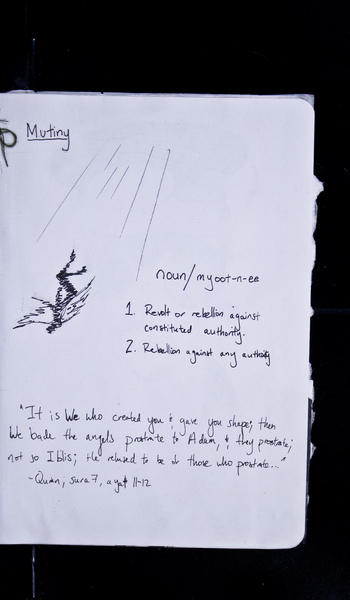 Mutiny
noun/myoot-n-ee
1. Revolt or rebellion against
constituted authority.
2. Rebellion against any authority
"It is We who created you & gave you shape; then
We bade the angels prostrate to Adam, & they prostrate;
not so Iblis; He refused to be of those who prostrate..."
-Quran, sura 7, ayat 11-12